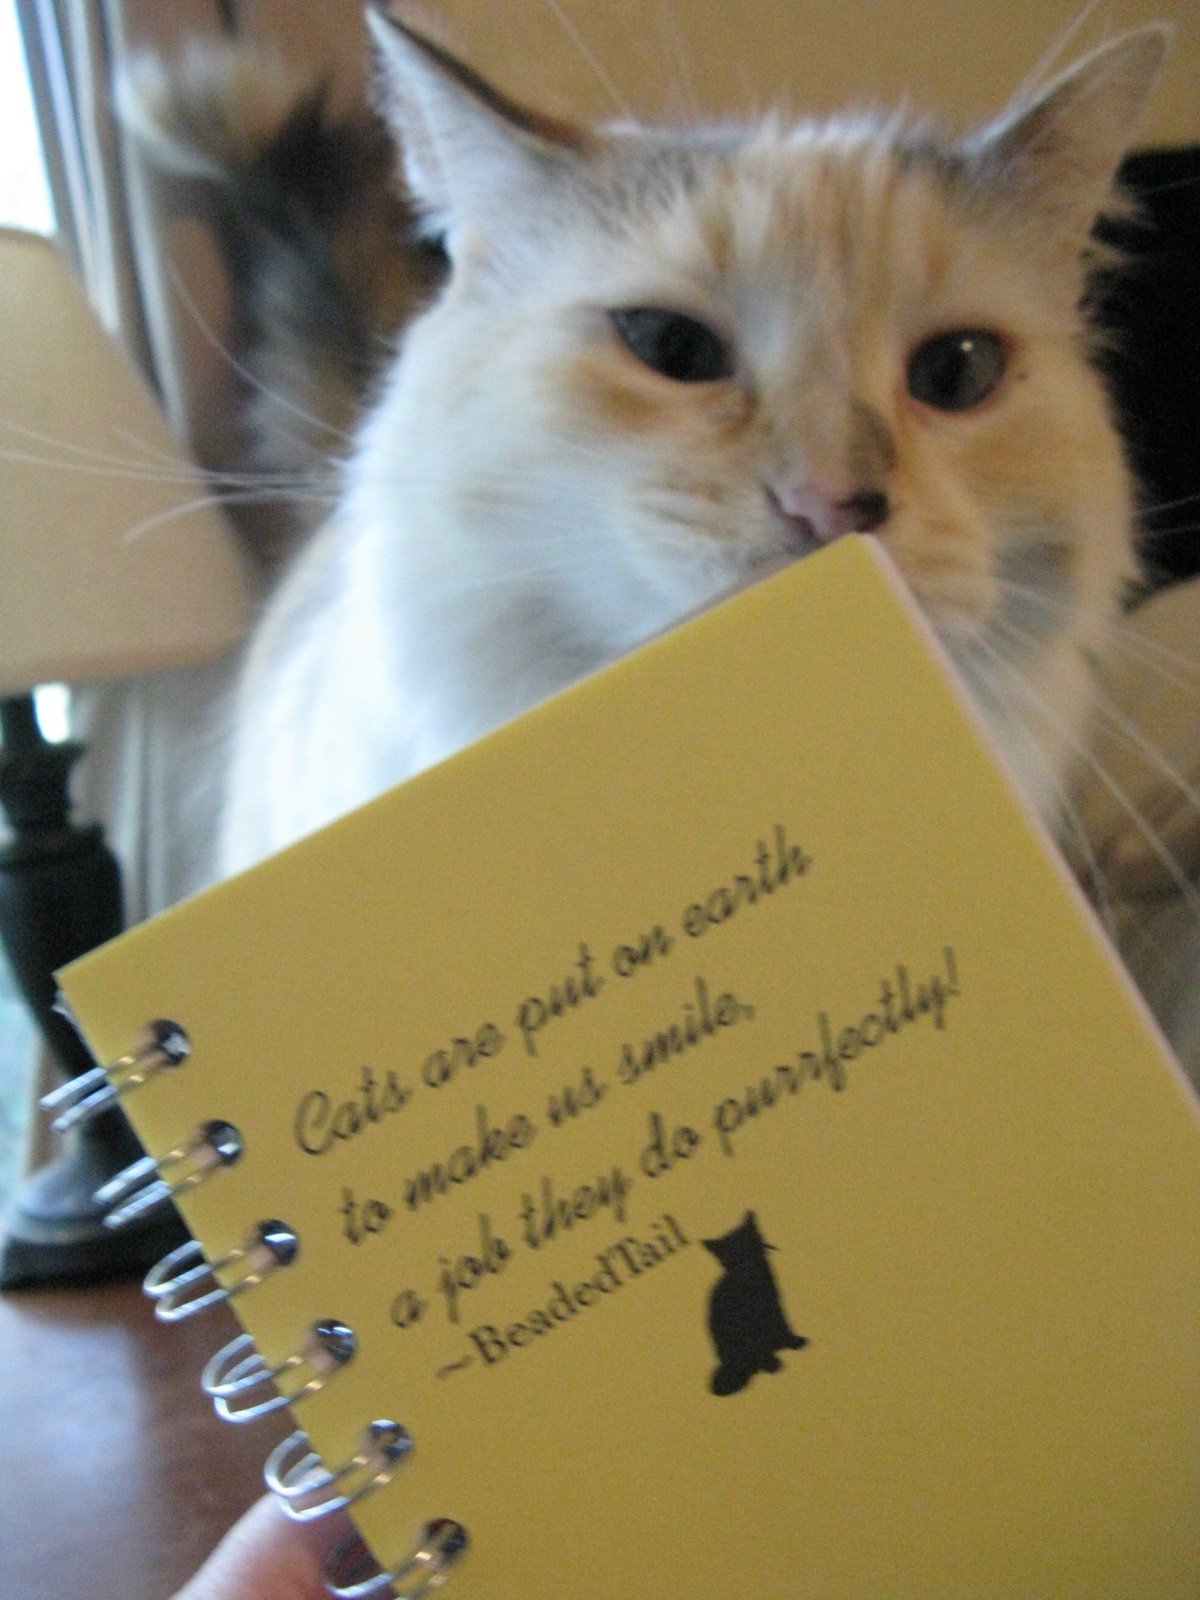 Cats are put on earth
to make us smile,
a job they do purrfectly!
~BeadedTail